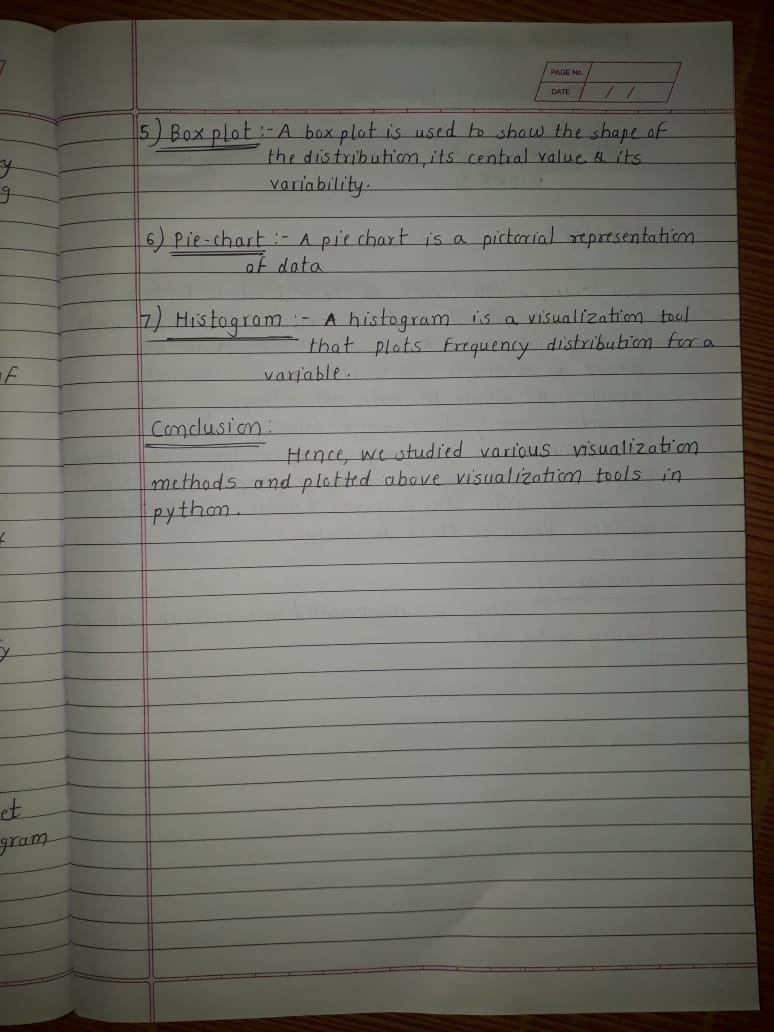 PAGE No.
DATE / /
5.) Box plot :- A box plot is used to show the shape of
the distribution, its central value & its
variability.
6) Pie-chart :- A pie chart is a pictorial representation
of data
7) Histogram :- A histogram is a visualization tool
that plots frequency distribution for a
variable.
Conclusion:
Hence, we studied various visualization
methods and plotted above visualization tools in
python.
et
gram